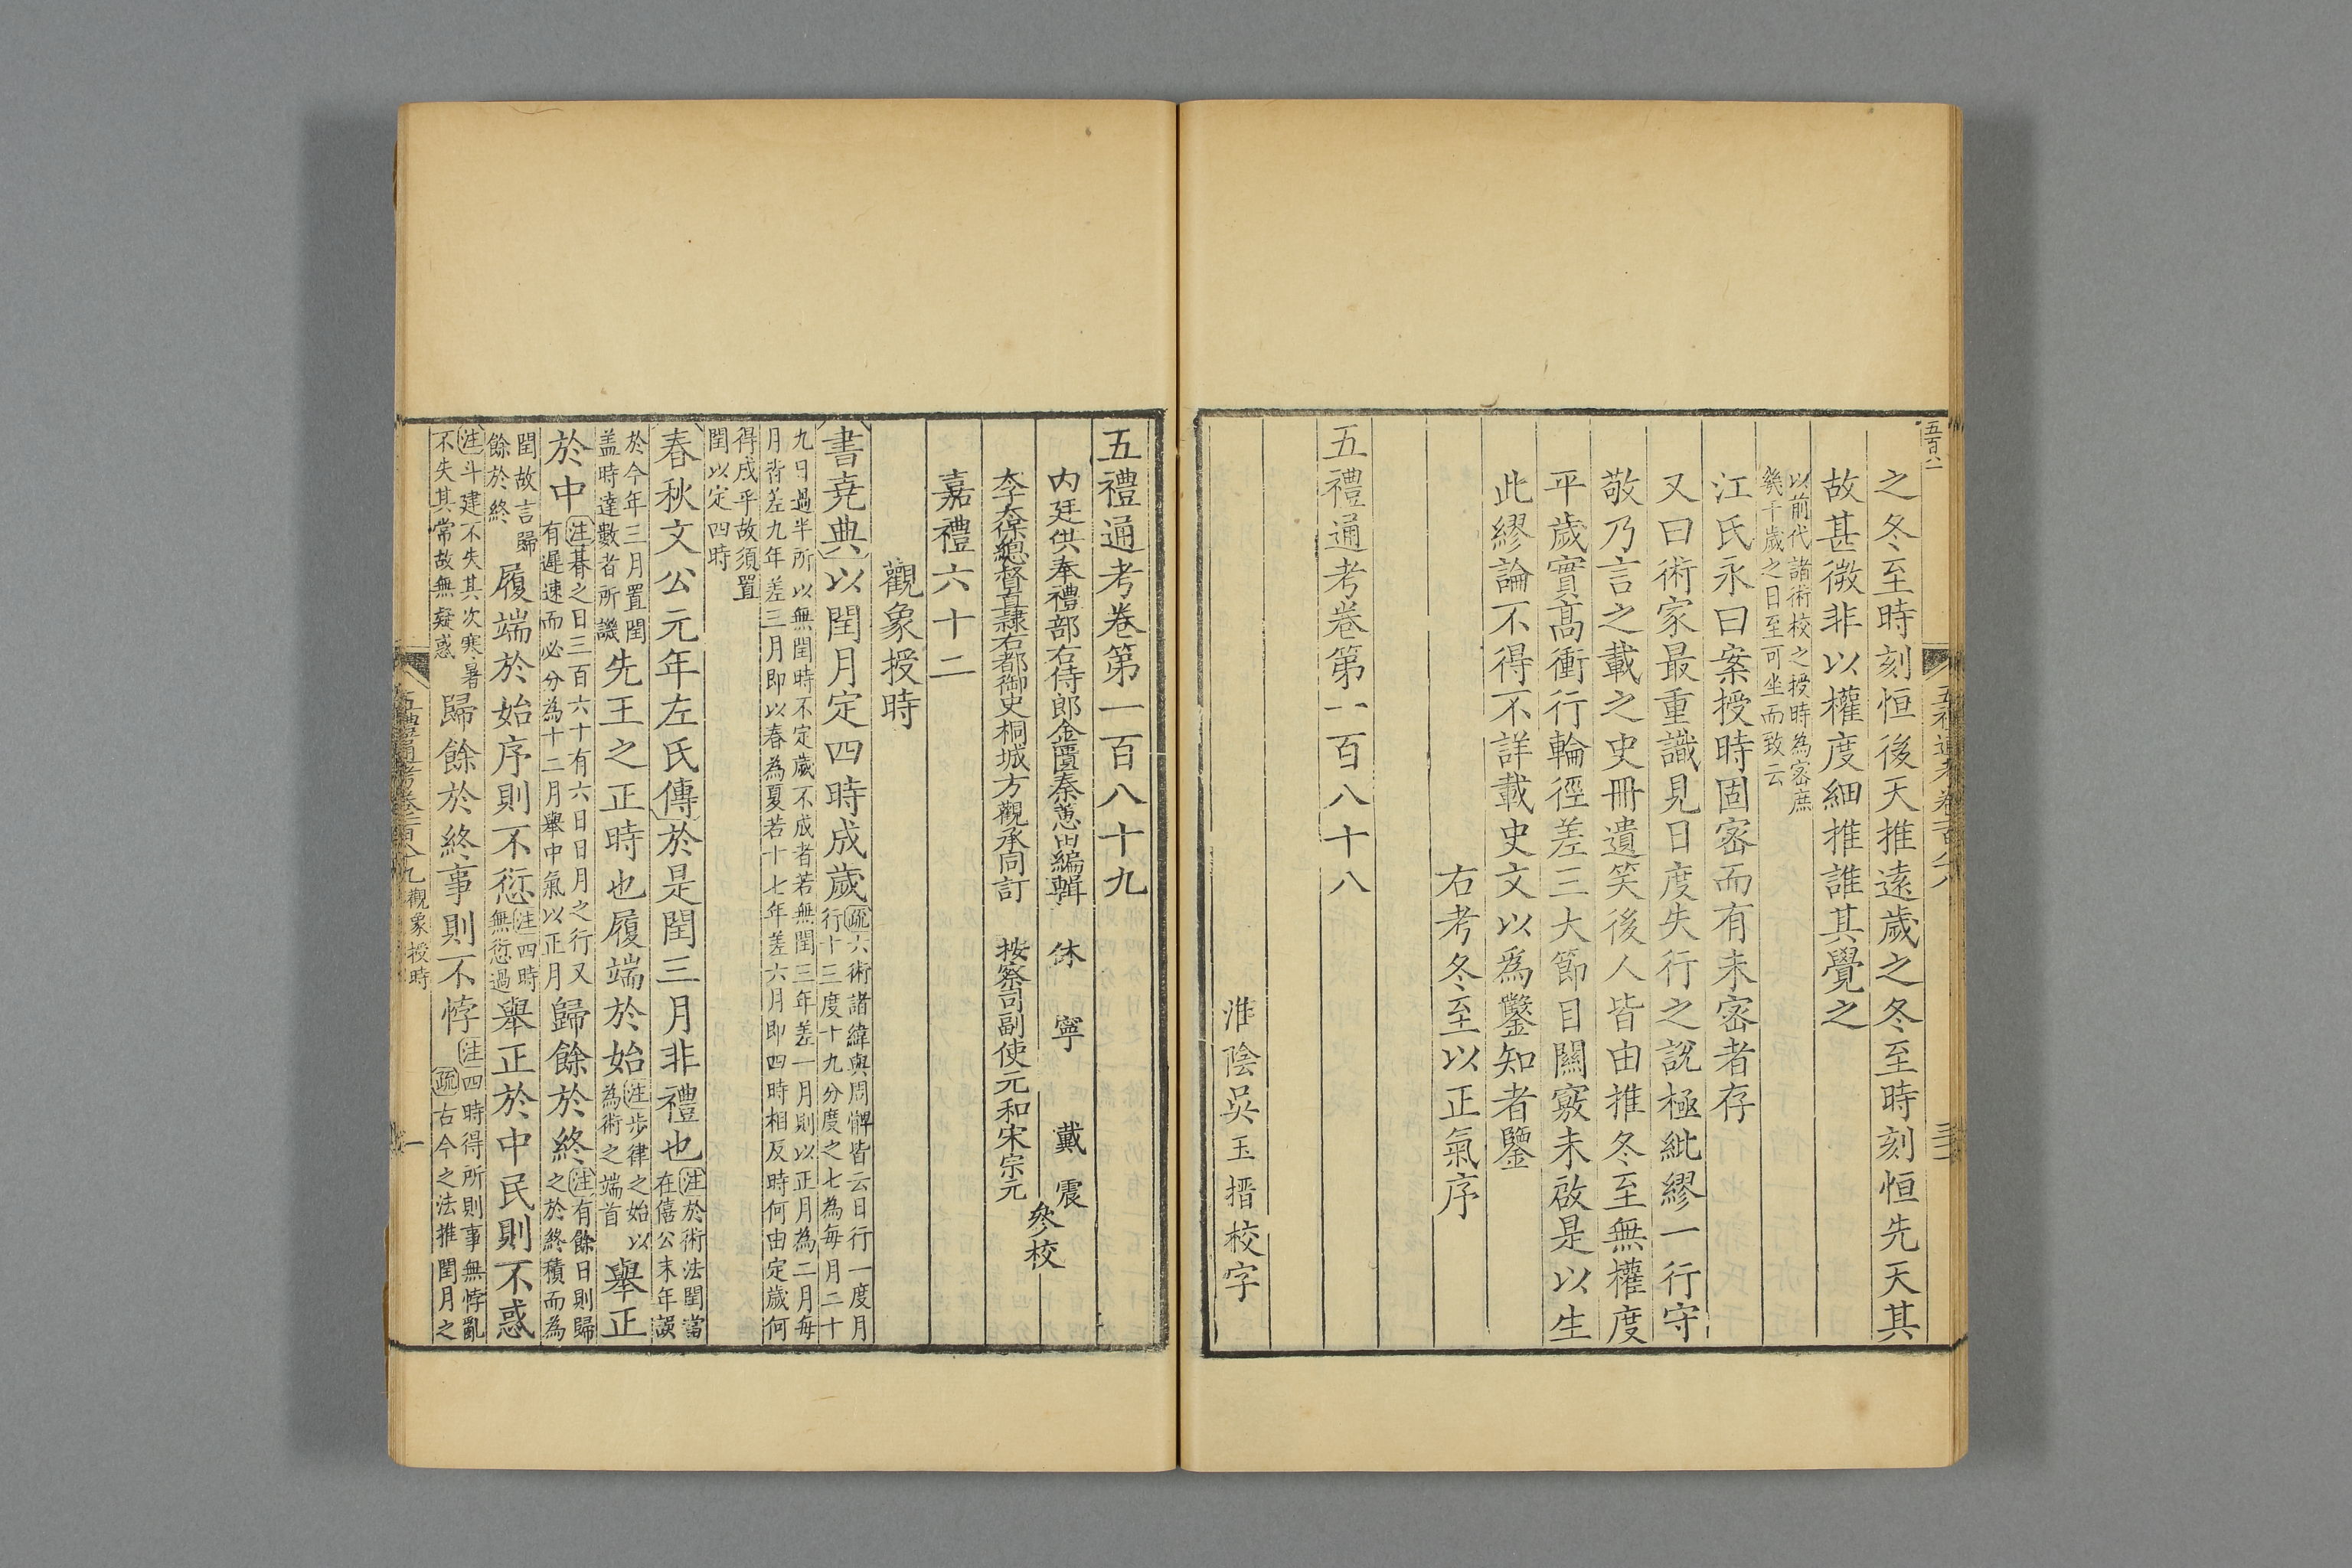 五百八
之冬至時刻恒後天推遠歲之冬至時刻恒先天其
故甚微非以權度細推誰其覺之
以前代諸術校之授時為密庶
幾千歲之日至可坐而致云
江氏永曰案授時固密而有未密者存
又曰術家最重識見日度失行之說極紕繆一行守
敬乃言之載之史冊遺笑後人皆由推冬至無權度
平歲實高衝行輪徑差三大節目關竅未啟是以生
此繆論不得不詳載史文以為鑒知者鑒
右考冬至以正氣序
五禮通考卷第一百八十八
淮陰吳玉搢校字
五禮通考卷第一百八十九
內廷供奉禮部右侍郎金匱秦蕙田編輯 休寧戴震
太子太保總督直隸右都御史桐城方觀承同訂 按察司副使元和宋宗元
參校
嘉禮六十二
觀象授時
書堯典以閏月定四時成歲
疏六術諸緯與周髀皆云日行一度月
行十三度十九分度之七為每月二十
九日過半所以無閏時不定歲不成者若無閏三年差一月則以正月為二月每
月皆差九年差三月即以春為夏若十七年差六月即四時相反時何由定歲何
得成乎故須置
閏以定四時
春秋文公元年左氏傳於是閏三月非禮也
注於術法閏當
在僖公末年誤
於今年三月置閏
蓋時達數者所譏
先王之正時也履端於始
注步律之始以
為術之端首
舉正
於中
注朞之日三百六十有六日日月之行又
有遲速而必分為十二月舉中氣以正月
歸餘於終
注有餘日則歸
之於終積而為
閏故言歸
餘於終
履端於始序則不愆
注四時
無愆過
舉正於中民則不惑
注斗建不失其次寒暑
不失其常故無疑惑
歸餘於終事則不悖
注四時得所則事無悖亂
疏古今之法推閏月之
五禮通考卷一百八十九 觀象授時
一